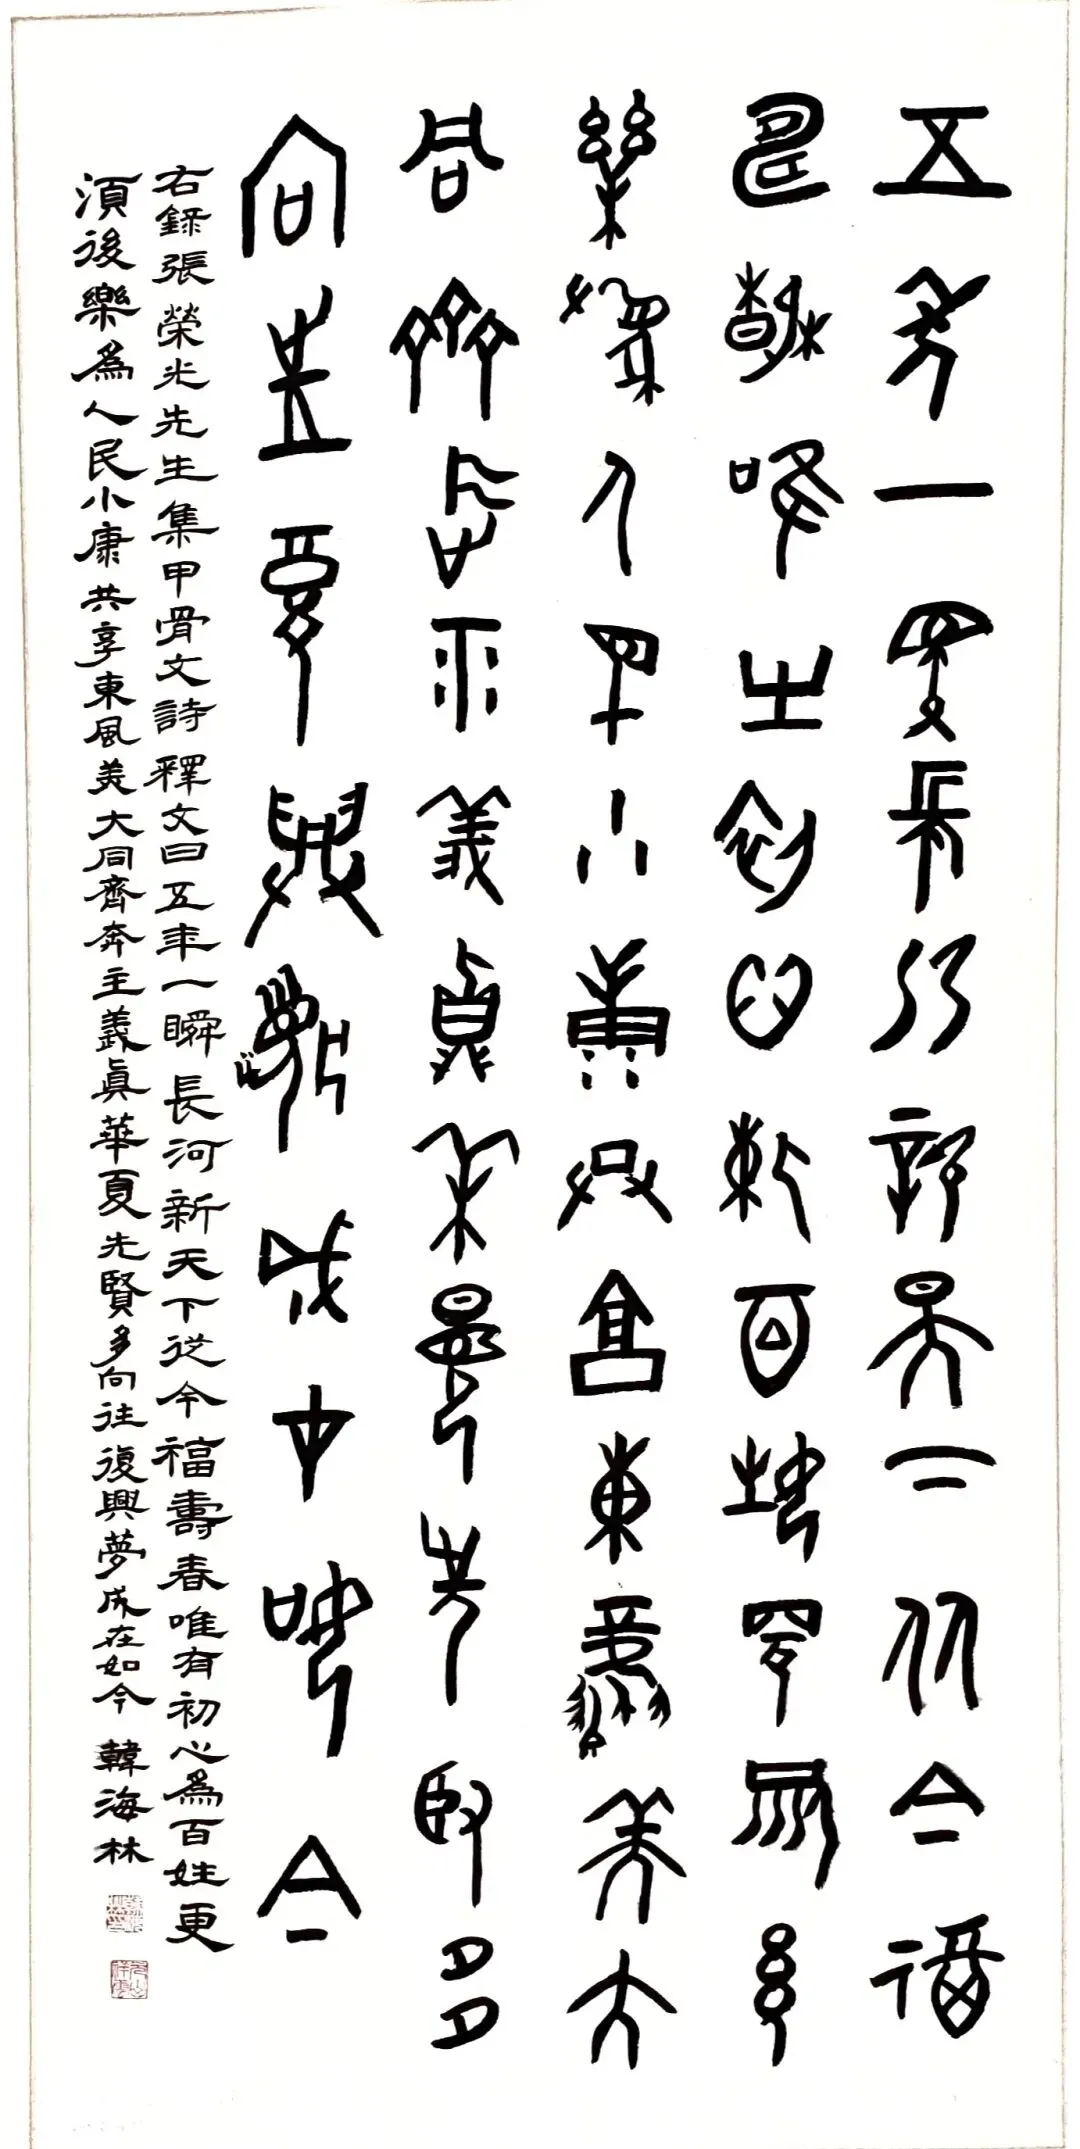 五年一瞬長河新天下從今福
壽春唯有初心為百姓更須後
樂為人民小康共享東風美大
同齊奔主義真華夏先賢多
向往復興夢成在如今
右錄張榮光先生集甲骨文詩釋文曰五年一瞬長河新天下從今福壽春唯有初心爲百姓更
須後樂爲人民小康共享東風美大同齊奔主義眞華夏先賢多向往復興夢成在如今 韓海林